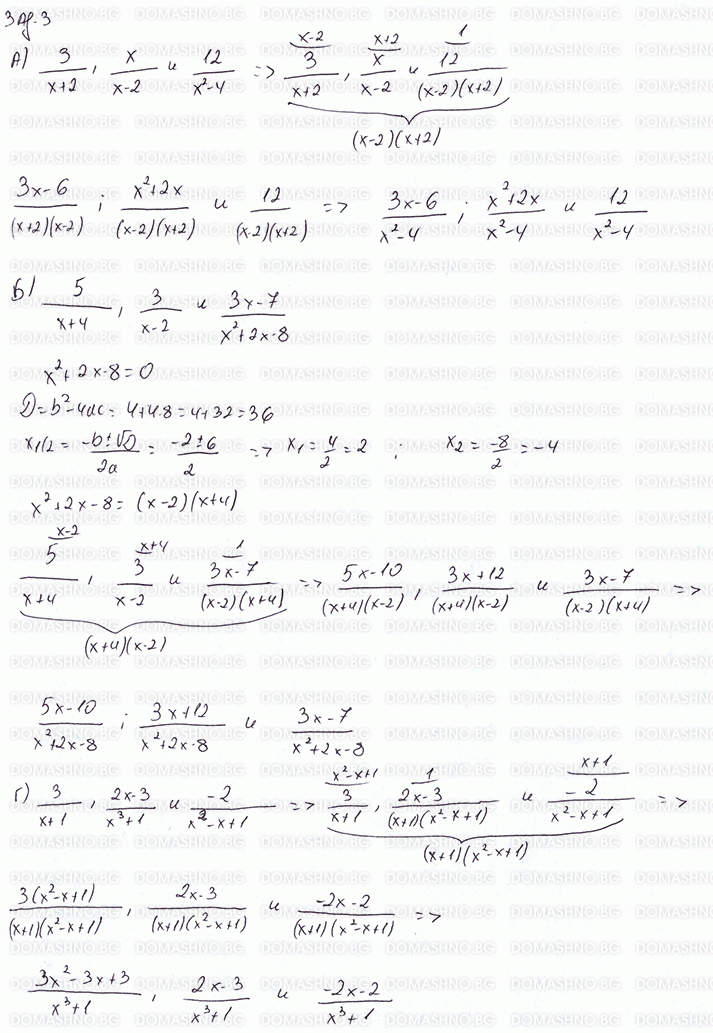 Зад. 3
А) 3/(x+2), x/(x-2) и 12/(x²-4) => (x-2) 3/(x+2), (x+2) x/(x-2) и (1) 12/((x-2)(x+2))
(x-2)(x+2)
(3x-6)/((x+2)(x-2)) ; (x²+2x)/((x-2)(x+2)) и 12/((x-2)(x+2)) => (3x-6)/(x²-4) ; (x²+2x)/(x²-4) и 12/(x²-4)
Б) 5/(x+4), 3/(x-2) и (3x-7)/(x²+2x-8)
x²+2x-8=0
D=b²-4ac = 4+4.8=4+32=36
x1/2 = (-b±√D)/2a = (-2±6)/2 => x₁=4/2=2 ; x₂=-8/2=-4
x²+2x-8= (x-2)(x+4)
(x-2) 5/(x+4), (x+4) 3/(x-2) и (1) (3x-7)/((x-2)(x+4)) => (5x-10)/((x+4)(x-2)), (3x+12)/((x+4)(x-2)) и (3x-7)/((x-2)(x+4)) =>
(x+4)(x-2)
(5x-10)/(x²+2x-8) ; (3x+12)/(x²+2x-8) и (3x-7)/(x²+2x-8)
Г) 3/(x+1), (2x-3)/(x³+1) и -2/(x²-x+1) => (x²-x+1) 3/(x+1), (1) (2x-3)/((x+1)(x²-x+1)) и (x+1) -2/(x²-x+1) =>
(x+1)(x²-x+1)
3(x²-x+1)/((x+1)(x²-x+1)), (2x-3)/((x+1)(x²-x+1)) и (-2x-2)/((x+1)(x²-x+1)) =>
(3x²-3x+3)/(x³+1), (2x-3)/(x³+1) и (-2x-2)/(x³+1)
DOMASHNO.BG